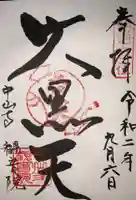 奉拝
令和二年
九月六日
大黒天
中山寺